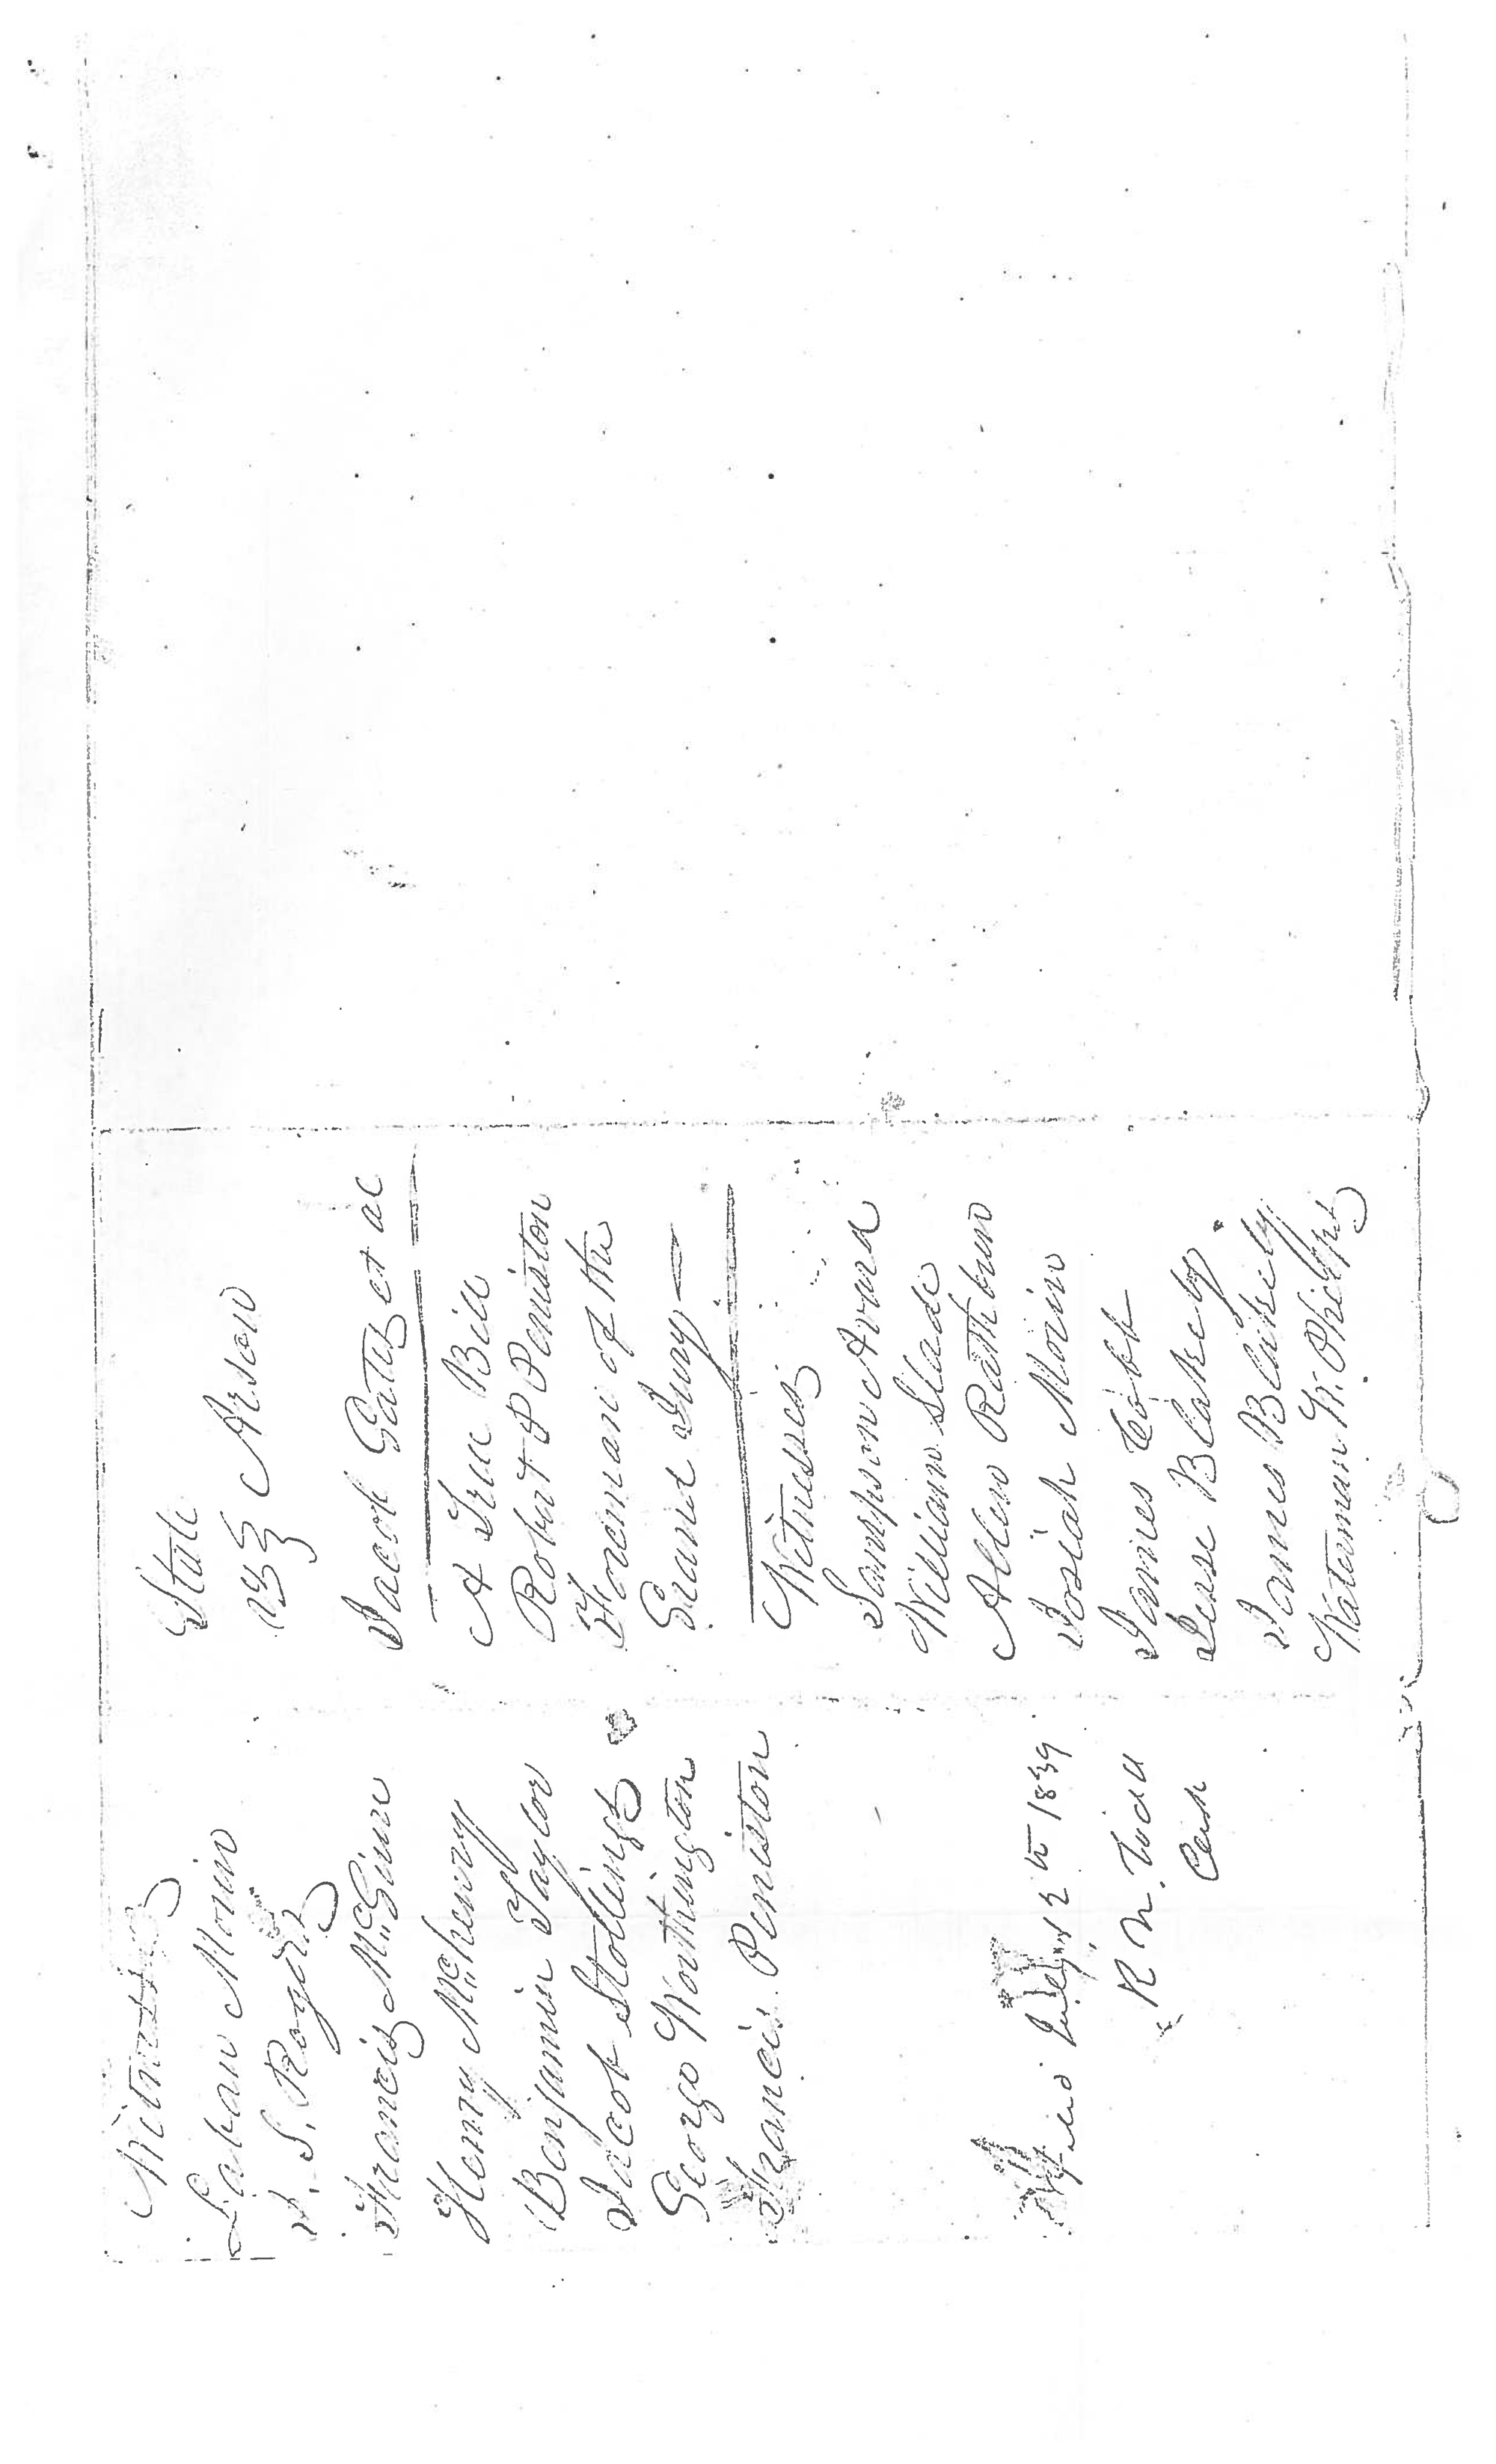 Witness
Laban Morin
J. S. Rogers
Francis McGuire
Henry McHenry
Benjamin Taylor
Jacob Stollings
George Worthington
Francis Peniston
Filed July 12th 1839
R N. Todd
Clerk
State
vs Arson
Jacob Gates et al
A True Bill
Robert P Peniston
Foreman of the
Grand Jury
Witnesses
Sampson Avard
William Slade
Allen Rathbun
Josiah Morin
James Cobb
Jesse Blakely
James Blakely
Waterman W. Phelps